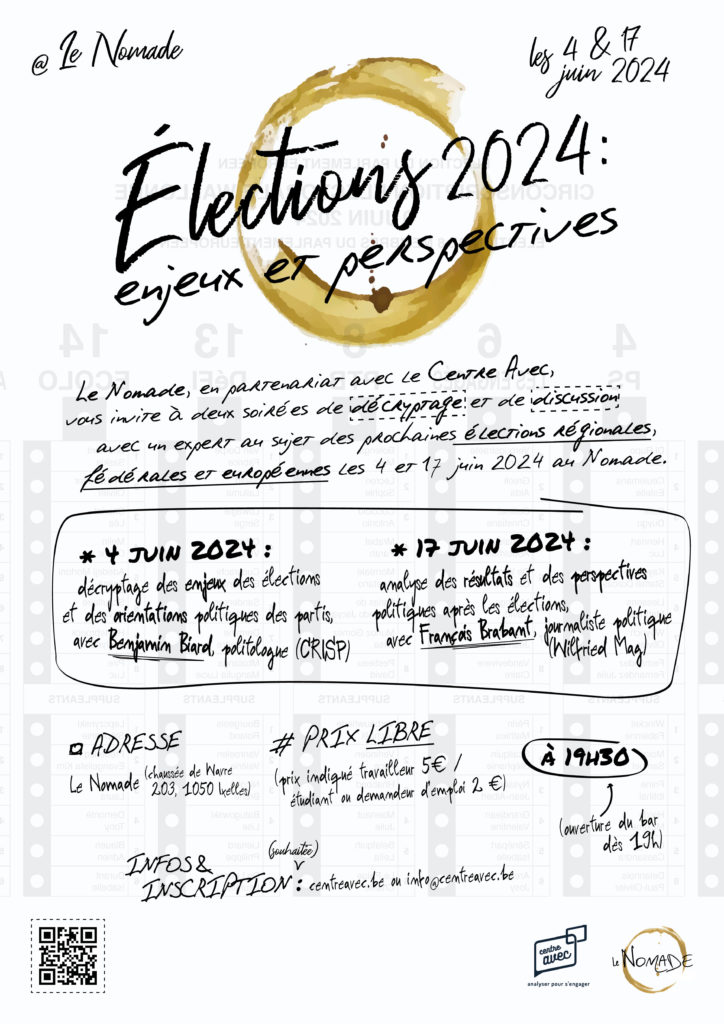 @ Le Nomade
les 4 & 17
juin 2024
Élections 2024:
enjeux et perspectives
Le Nomade, en partenariat avec le Centre Avec,
vous invite à deux soirées de décryptage et de discussion
avec un expert au sujet des prochaines élections régionales,
fédérales et européennes les 4 et 17 juin 2024 au Nomade.
* 4 JUIN 2024 :
décryptage des enjeux des élections
et des orientations politiques des partis,
avec Benjamin Biard, politologue (CRISP)
* 17 JUIN 2024 :
analyse des résultats et des perspectives
politiques après les élections,
avec François Brabant, journaliste politique
(Wilfried Mag)
ADRESSE
Le Nomade (chaussée de Wavre
203, 1050 Ixelles)
# PRIX LIBRE
(prix indiqué travailleur 5€ /
étudiant ou demandeur d'emploi 2 €)
À 19H30
(ouverture du bar
dès 19h)
(souhaitée)
INFOS &
INSCRIPTION : centreavec.be ou info@centreavec.be
centre
avec
analyser pour s'engager
Le NOMADE
PS
6
8
DéFI
13
ECOLO
14
4
SUPPLEANTS